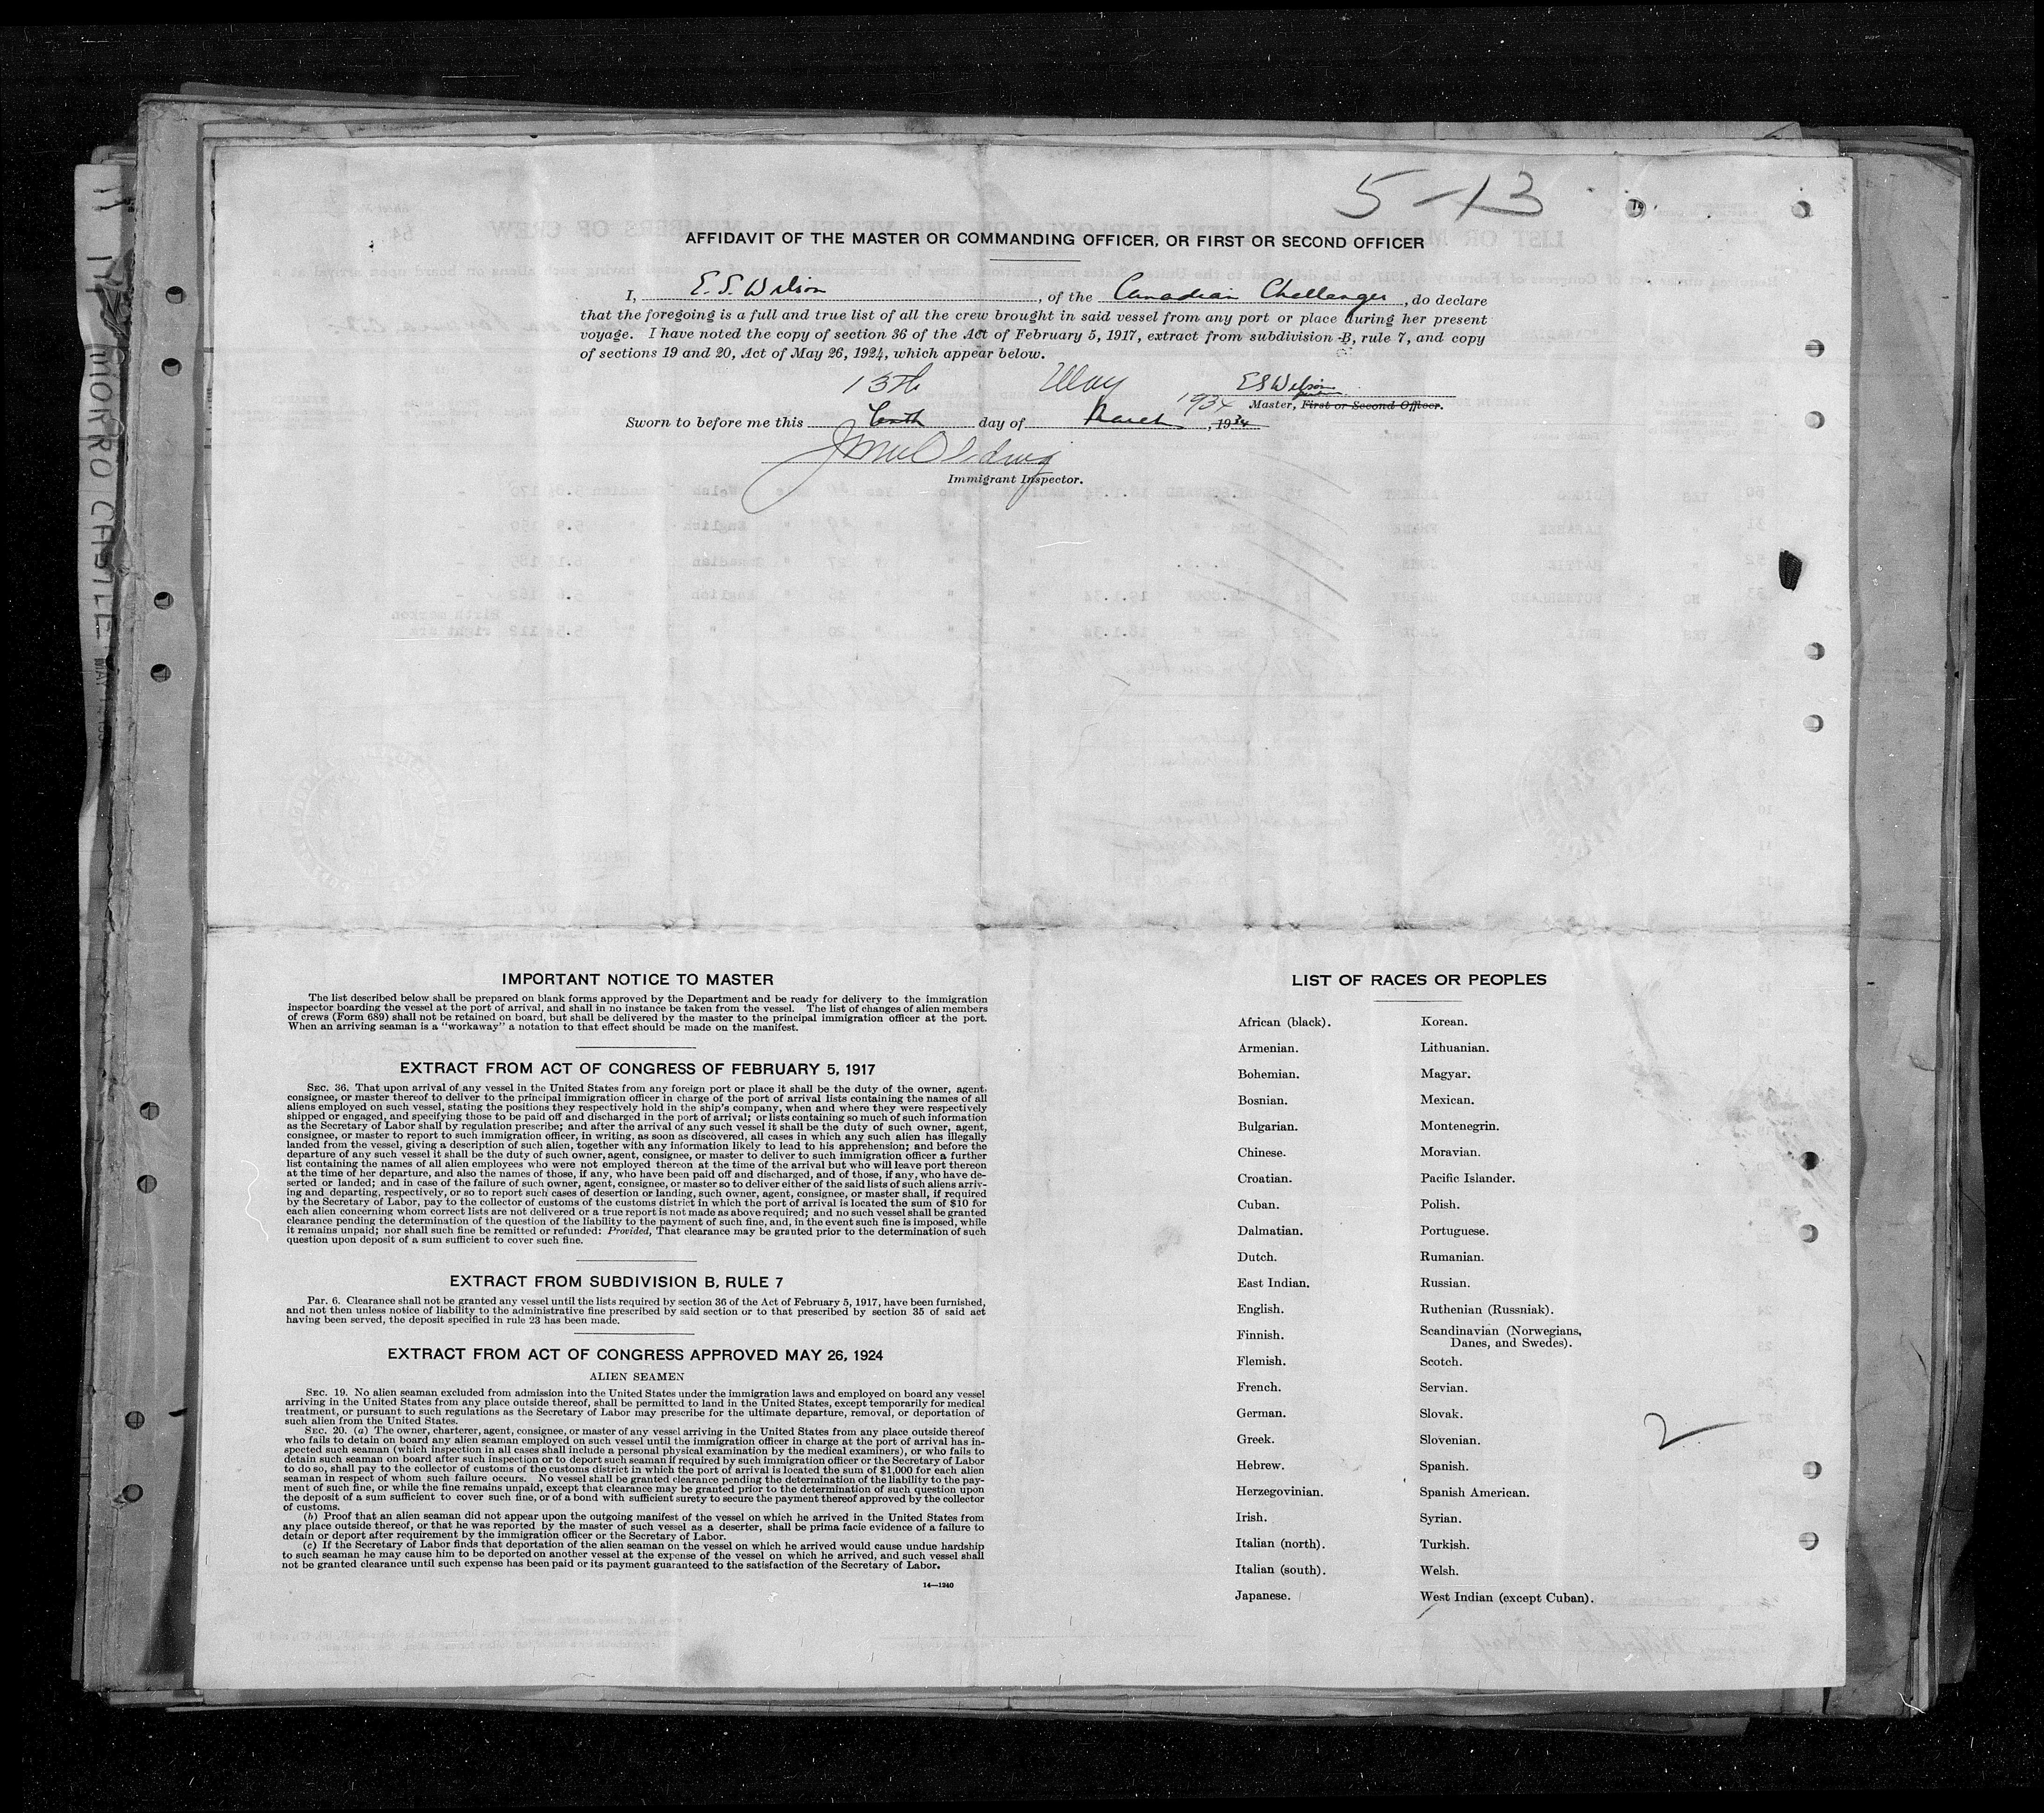 5-13
AFFIDAVIT OF THE MASTER OR COMMANDING OFFICER, OR FIRST OR SECOND OFFICER
I, E. S. Wilson, of the Canadian Challenger, do declare
that the foregoing is a full and true list of all the crew brought in said vessel from any port or place during her present
voyage. I have noted the copy of section 36 of the Act of February 5, 1917, extract from subdivision B, rule 7, and copy
of sections 19 and 20, Act of May 26, 1924, which appear below.
13th May 1934 E S Wilson
Master, First or Second Officer.
Sworn to before me this tenth day of March, 1934
Immigrant Inspector.
MORRO CASTLE
IMPORTANT NOTICE TO MASTER
The list described below shall be prepared on blank forms approved by the Department and be ready for delivery to the immigration
inspector boarding the vessel at the port of arrival, and shall in no instance be taken from the vessel. The list of changes of alien members
of crews (Form 689) shall not be retained on board, but shall be delivered by the master to the principal immigration officer at the port.
When an arriving seaman is a "workaway" a notation to that effect should be made on the manifest.
EXTRACT FROM ACT OF CONGRESS OF FEBRUARY 5, 1917
SEC. 36. That upon arrival of any vessel in the United States from any foreign port or place it shall be the duty of the owner, agent,
consignee, or master thereof to deliver to the principal immigration officer in charge of the port of arrival lists containing the names of all
aliens employed on such vessel, stating the positions they respectively hold in the ship's company, when and where they were respectively
shipped or engaged, and specifying those to be paid off and discharged in the port of arrival; or lists containing so much of such information
as the Secretary of Labor shall by regulation prescribe; and after the arrival of any such vessel it shall be the duty of such owner, agent,
consignee, or master to report to such immigration officer, in writing, as soon as discovered, all cases in which any such alien has illegally
landed from the vessel, giving a description of such alien, together with any information likely to lead to his apprehension; and before the
departure of any such vessel it shall be the duty of such owner, agent, consignee, or master to deliver to such immigration officer a further
list containing the names of all alien employees who were not employed thereon at the time of the arrival but who will leave port thereon
at the time of her departure, and also the names of those, if any, who have been paid off and discharged, and of those, if any, who have de-
serted or landed; and in case of the failure of such owner, agent, consignee, or master so to deliver either of the said lists of such aliens arriv-
ing and departing, respectively, or so to report such cases of desertion or landing, such owner, agent, consignee, or master shall, if required
by the Secretary of Labor, pay to the collector of customs of the customs district in which the port of arrival is located the sum of $10 for
each alien concerning whom correct lists are not delivered or a true report is not made as above required; and no such vessel shall be granted
clearance pending the determination of the question of the liability to the payment of such fine, and, in the event such fine is imposed, while
it remains unpaid; nor shall such fine be remitted or refunded: Provided, That clearance may be granted prior to the determination of such
question upon deposit of a sum sufficient to cover such fine.
EXTRACT FROM SUBDIVISION B, RULE 7
PAR. 6. Clearance shall not be granted any vessel until the lists required by section 36 of the Act of February 5, 1917, have been furnished,
and not then unless notice of liability to the administrative fine prescribed by said section or to that prescribed by section 35 of said act
having been served, the deposit specified in rule 23 has been made.
EXTRACT FROM ACT OF CONGRESS APPROVED MAY 26, 1924
ALIEN SEAMEN
SEC. 19. No alien seaman excluded from admission into the United States under the immigration laws and employed on board any vessel
arriving in the United States from any place outside thereof, shall be permitted to land in the United States, except temporarily for medical
treatment, or pursuant to such regulations as the Secretary of Labor may prescribe for the ultimate departure, removal, or deportation of
such alien from the United States.
SEC. 20. (a) The owner, charterer, agent, consignee, or master of any vessel arriving in the United States from any place outside thereof
who fails to detain on board any alien seaman employed on such vessel until the immigration officer in charge at the port of arrival has in-
spected such seaman (which inspection in all cases shall include a personal physical examination by the medical examiners), or who fails to
detain such seaman on board after such inspection or to deport such seaman if required by such immigration officer or the Secretary of Labor
to do so, shall pay to the collector of customs of the customs district in which the port of arrival is located the sum of $1,000 for each alien
seaman in respect of whom such failure occurs. No vessel shall be granted clearance pending the determination of the liability to the pay-
ment of such fine, or while the fine remains unpaid, except that clearance may be granted prior to the determination of such question upon
the deposit of a sum sufficient to cover such fine, or of a bond with sufficient surety to secure the payment thereof approved by the collector
of customs.
(b) Proof that an alien seaman did not appear upon the outgoing manifest of the vessel on which he arrived in the United States from
any place outside thereof, or that he was reported by the master of such vessel as a deserter, shall be prima facie evidence of a failure to
detain or deport after requirement by the immigration officer or the Secretary of Labor.
(c) If the Secretary of Labor finds that deportation of the alien seaman on the vessel on which he arrived would cause undue hardship
to such seaman he may cause him to be deported on another vessel at the expense of the vessel on which he arrived, and such vessel shall
not be granted clearance until such expense has been paid or its payment guaranteed to the satisfaction of the Secretary of Labor.
14—1240
LIST OF RACES OR PEOPLES
African (black).
Armenian.
Bohemian.
Bosnian.
Bulgarian.
Chinese.
Croatian.
Cuban.
Dalmatian.
Dutch.
East Indian.
English.
Finnish.
Flemish.
French.
German.
Greek.
Hebrew.
Herzegovinian.
Irish.
Italian (north).
Italian (south).
Japanese.
Korean.
Lithuanian.
Magyar.
Mexican.
Montenegrin.
Moravian.
Pacific Islander.
Polish.
Portuguese.
Rumanian.
Russian.
Ruthenian (Russniak).
Scandinavian (Norwegians,
Danes, and Swedes).
Scotch.
Servian.
Slovak.
Slovenian.
Spanish.
Spanish American.
Syrian.
Turkish.
Welsh.
West Indian (except Cuban).
2